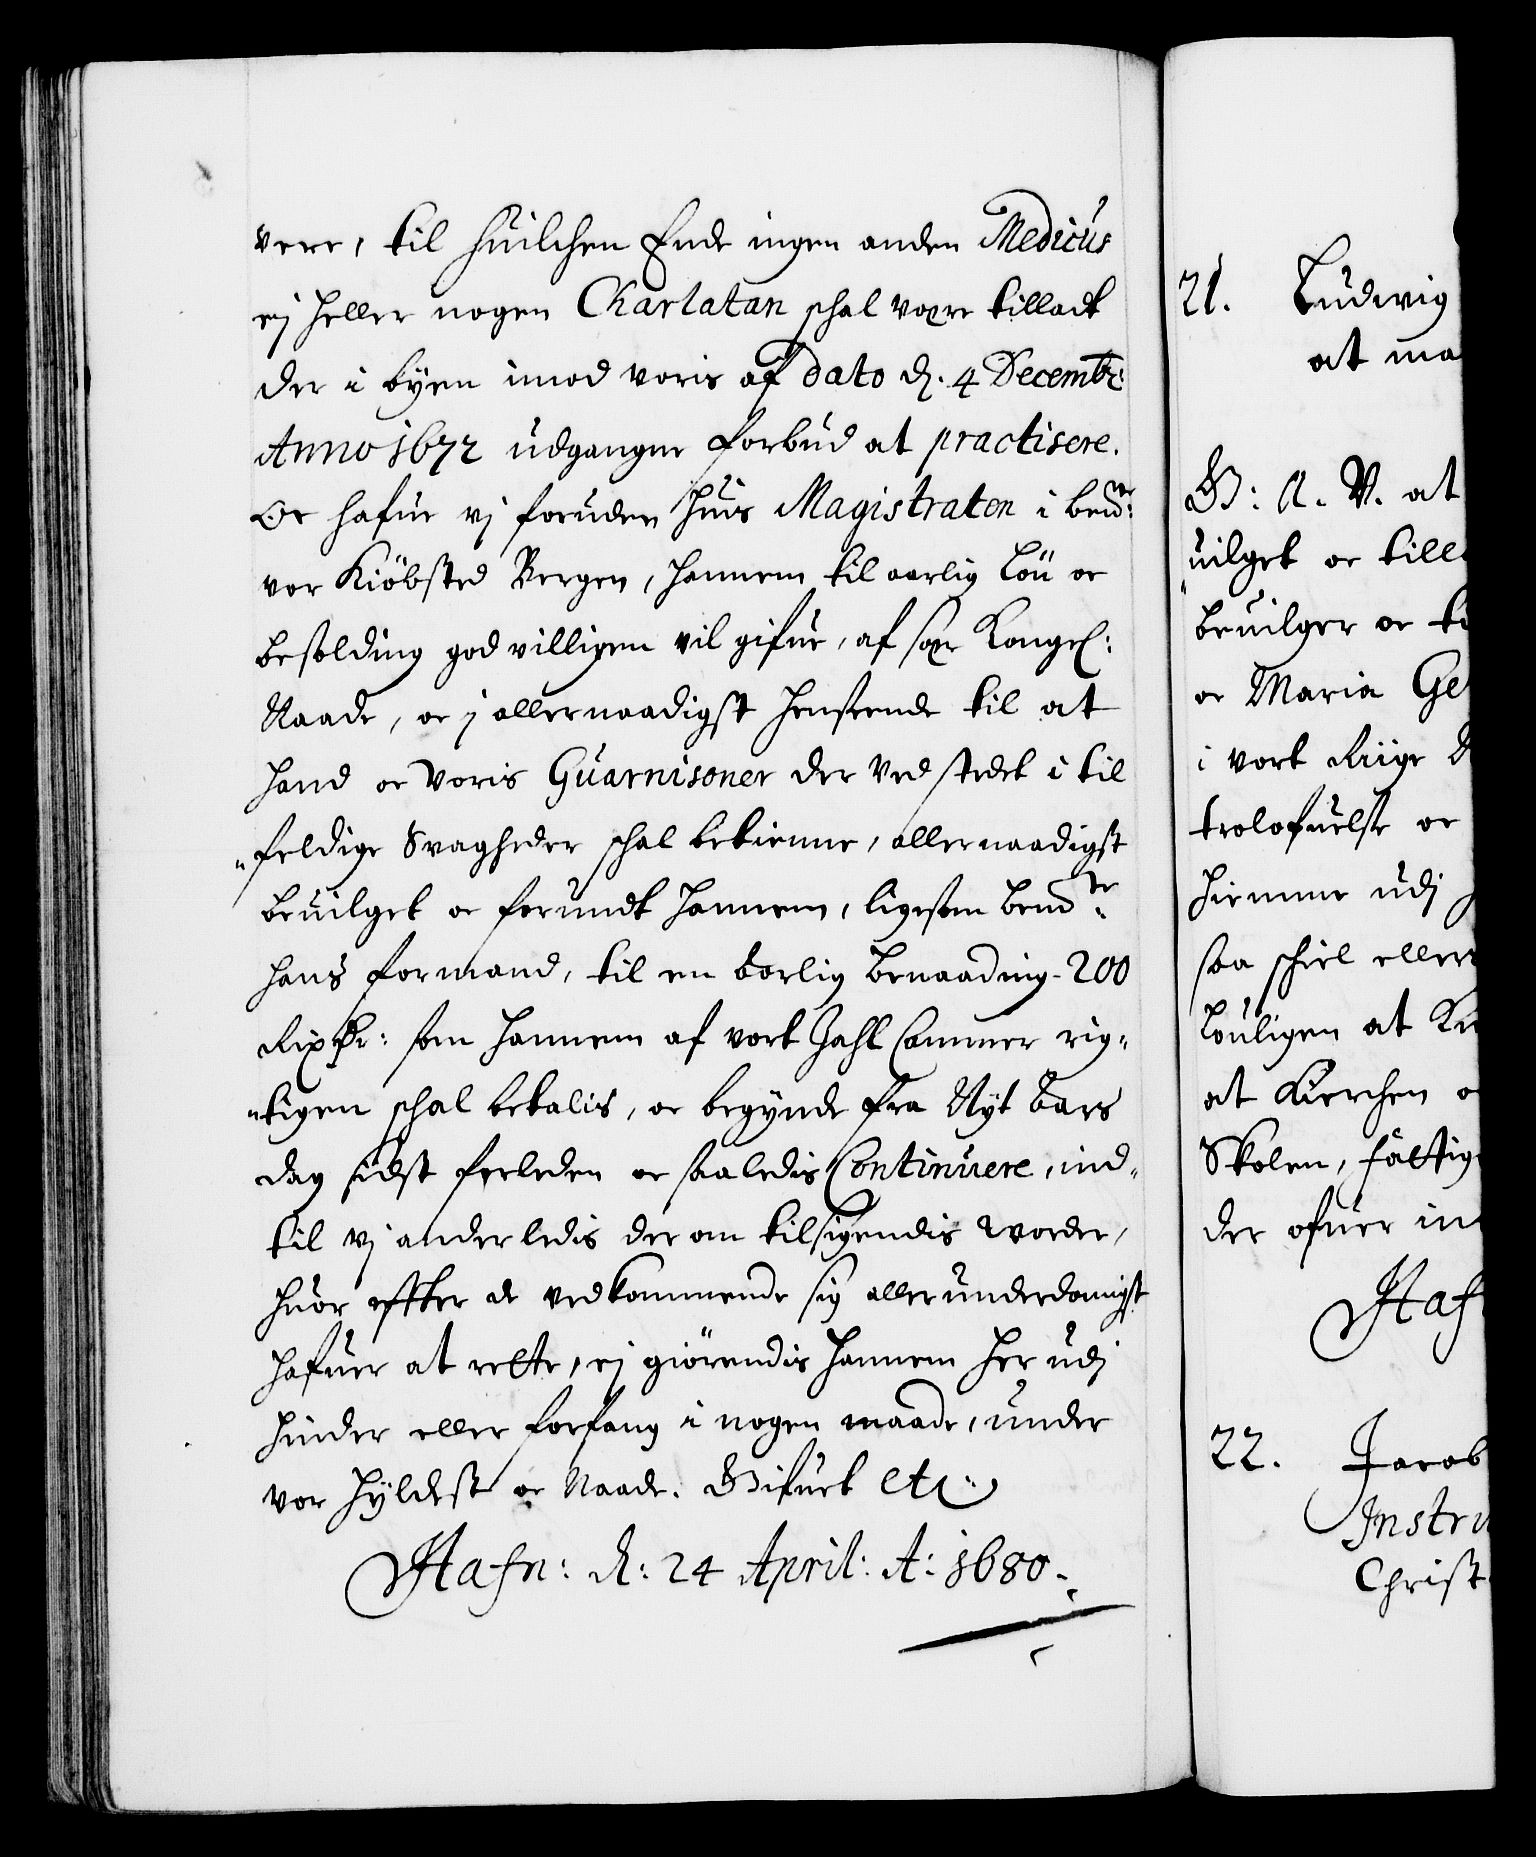 vere, til huilchen Ende ingen anden Medicus
ej heller nogen Charlatan schal være tilladt
der i byen imod voris af dato d. 4 Decembr:
Anno 1672 udgangne forbud at practisere.
Oc hafue vj foruden huis Magistraten i bem.te
vor Kiöbsted Bergen, hannem til aarlig Lön oc
besolding godvilligen vil gifue, af sær Kongel:
Naade, oc j allernaadigst henseende til at
hand oc voris Guarnisoner der ved stedet i til
"feldige Svagheder schal betienne, allernaadigst
beuilget oc forundt hannem, ligesom bem.te
hans formand, til en Aarlig benaading 200
Rixdr: som hannem af vort Zahl Cammer rig"
"tigen schal betalis, oc begynde fra Nyt Aars
dag sidst forleden oc saaledis Continuere, ind"
til vj anderledis der om tilsigendis worder,
huor effter de vedkommende sig allerunderdanigst
hafuer at rette, ej giörendis hannem her udj
hinder eller forfang i nogen maade, under
vor hyldest oc Naade. Gifuet etc:
Hafn: d: 24 April: A: 1680.
21. Ludwig
at ma
G: A. V. at
uilget oc till
beuilger oc ti
oc Maria Ge
i vort Riige D
trolofuelse oc
hiemme udj
saa schiel eller
louligen at Ki
at Kierchen o
Skolen, fattig
der ofuer in
Haf
22. Jacob
Instru
Christ